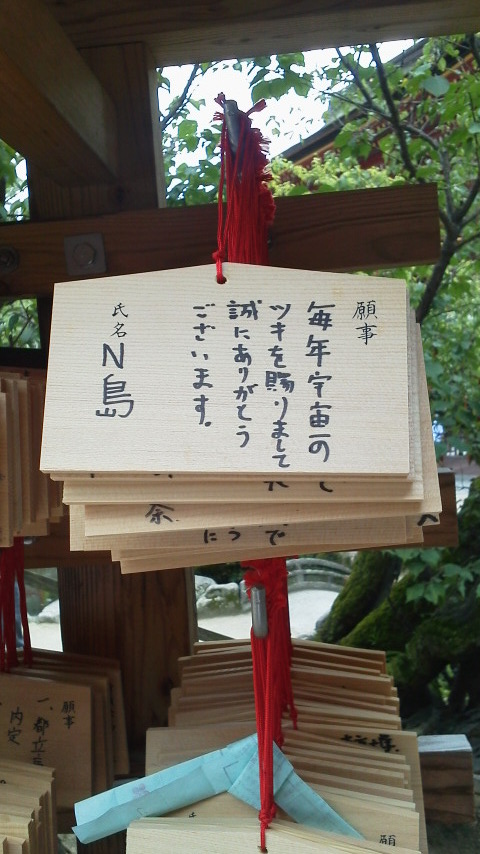 願事
毎年宇宙一の
ツキを賜りまして
誠にありがとう
ございます。
氏名
N島
余
にうで
願事
一、都立
内定
願